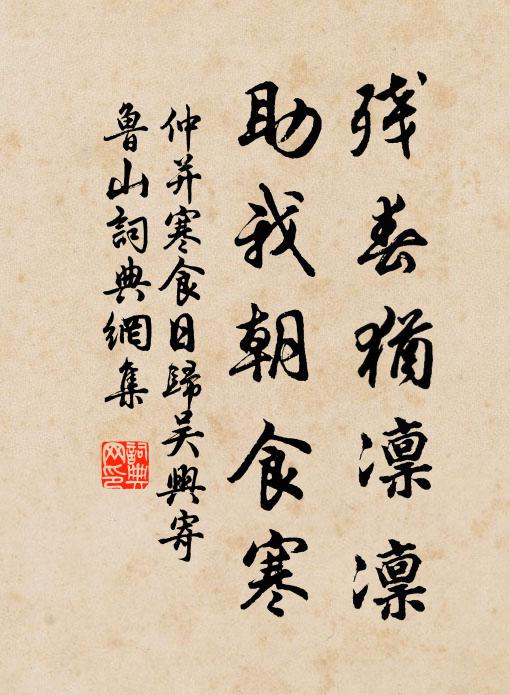 残春猶凜凜
助我朝食寒
仲并寒食日歸吴興寄
魯山詞典網集
詞典网印